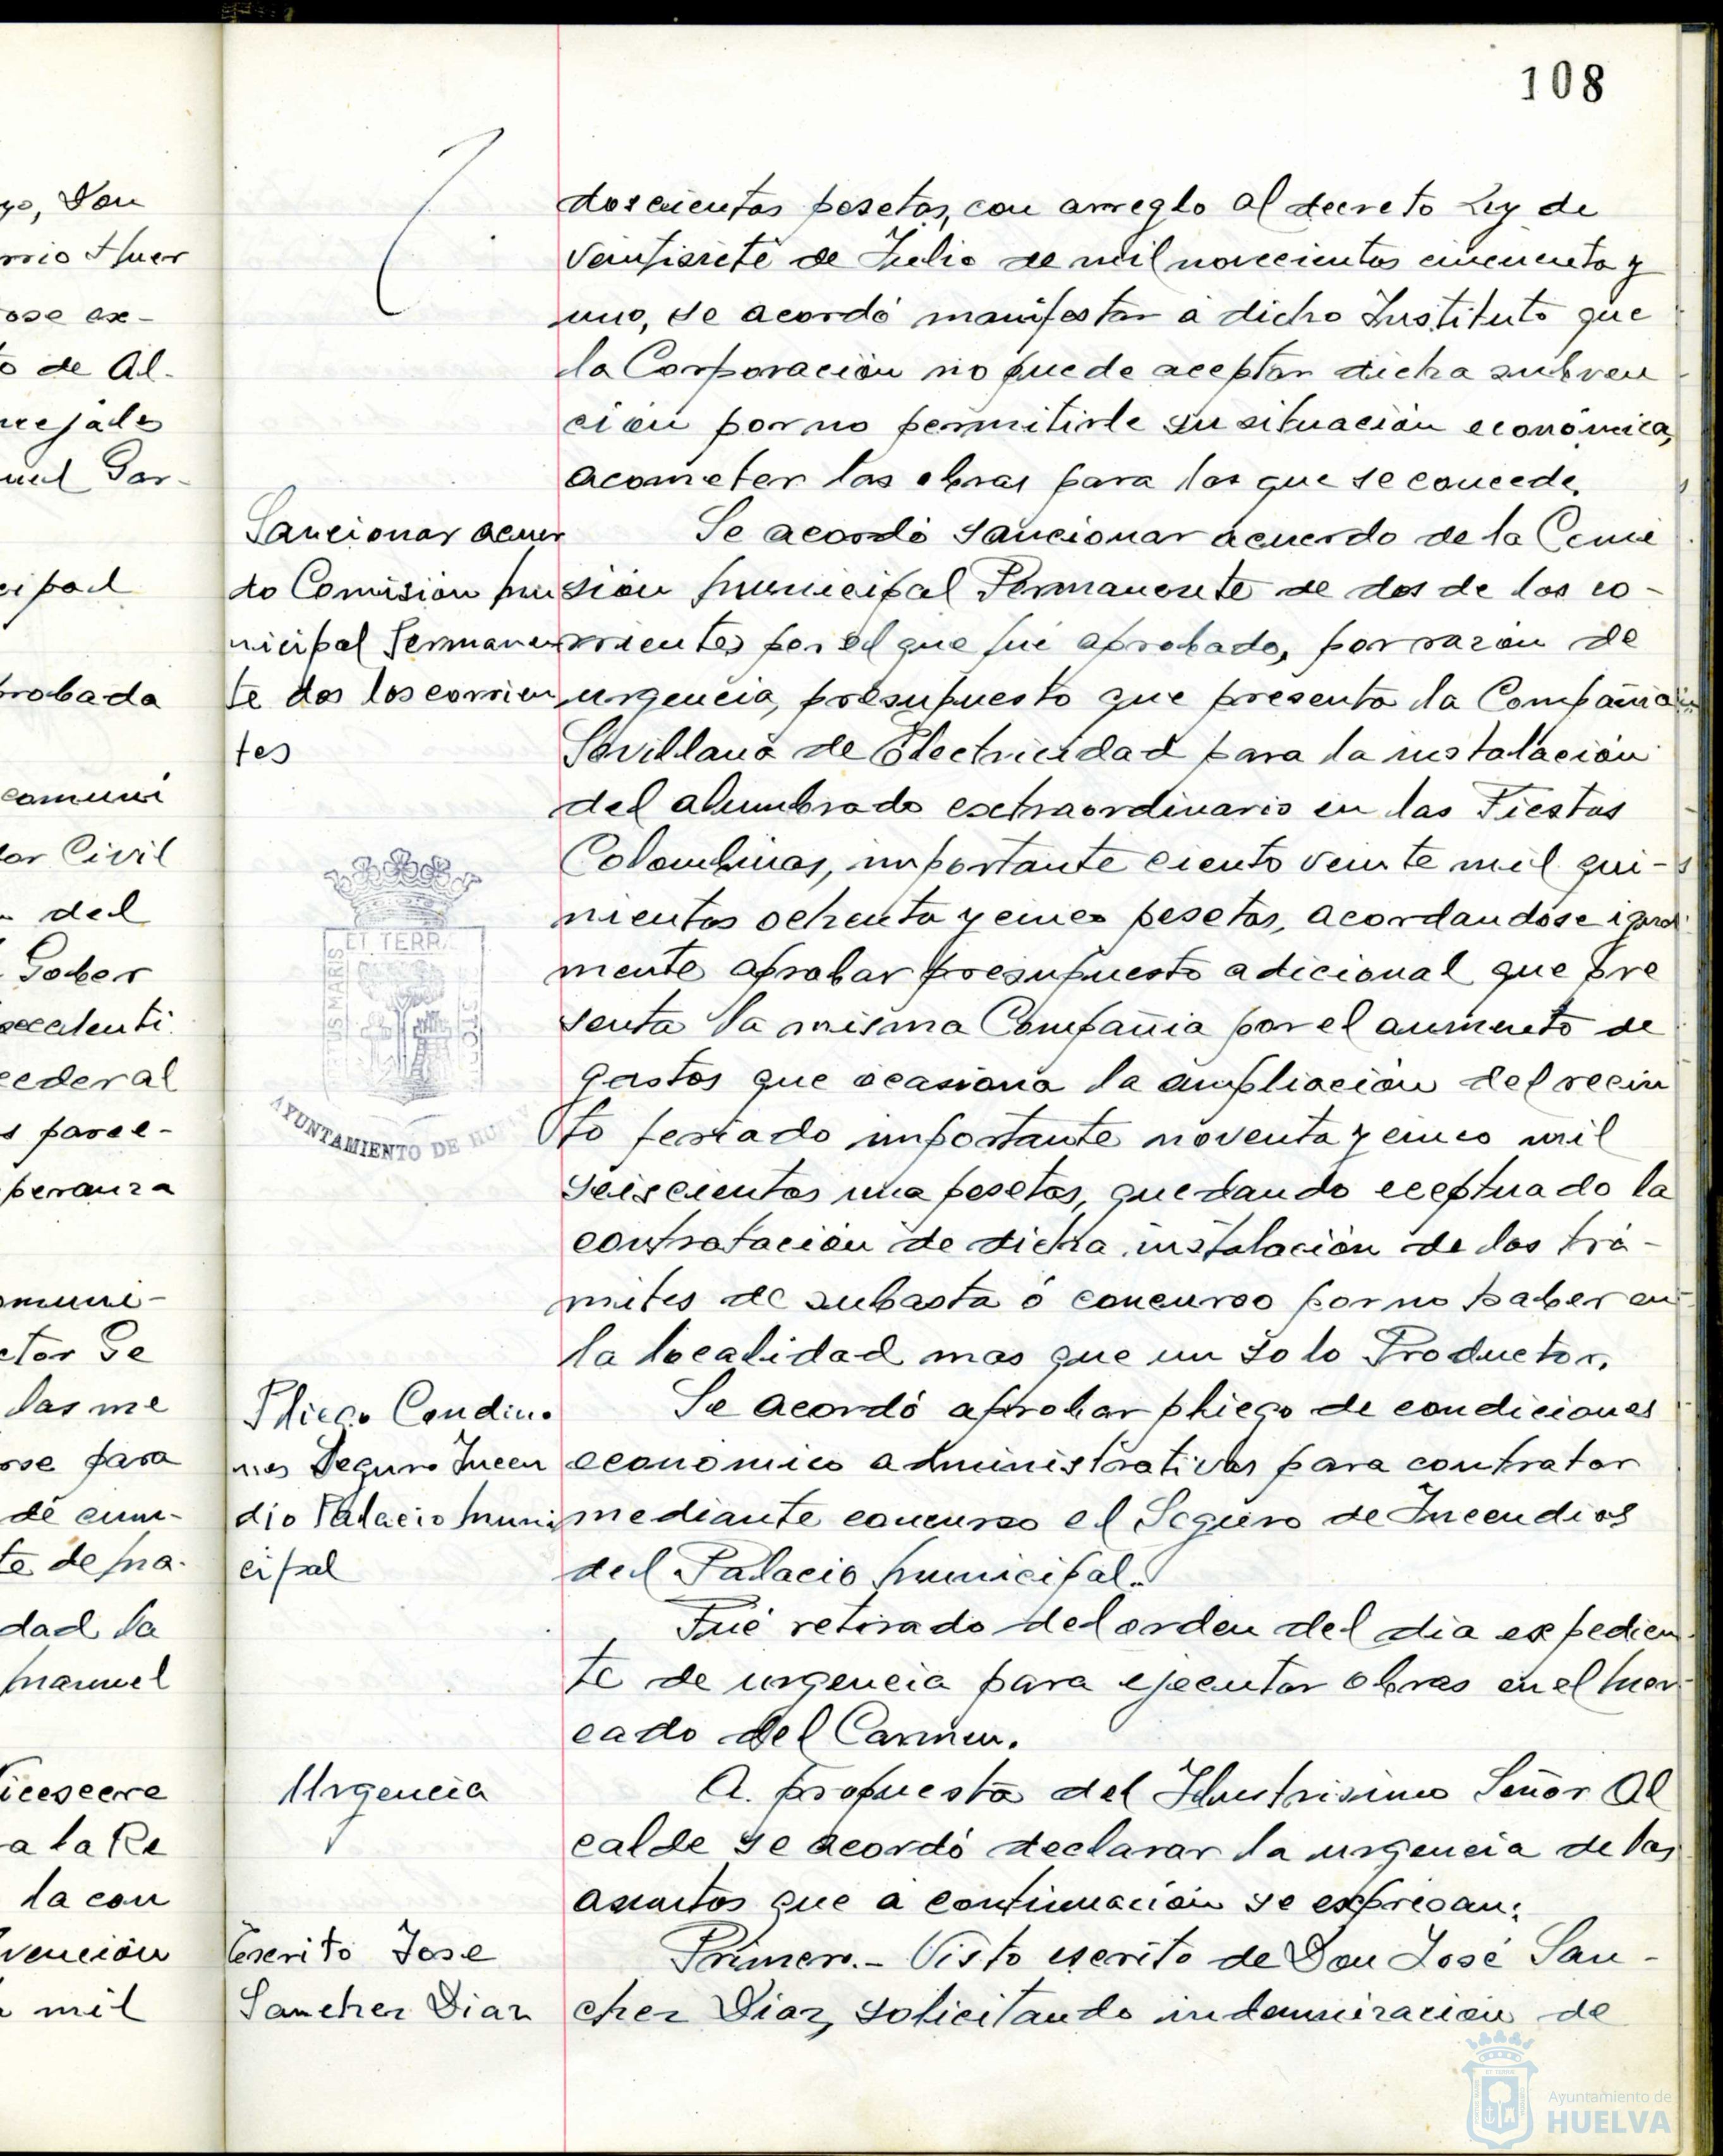 108
yo, Don
rrio Huer
ose ex-
o de Al-
ncejales
uel Gar-
cipal
robada
comuni
dor Civil
del
Gober
ceder al
s parce-
peranza
omuni-
ctor Ge
las me
rse para
de cum-
te de ma-
dad la
Manuel
Vicesecre
a la Re
la con
vención
mil
doscientas pesetas, con arreglo al decreto Ley de
veintisiete de Julio de mil novecientos cincuenta y
uno, se acordó manifestar a dicho Instituto que
la Corporación no puede aceptar dicha subven
ción por no permitirle su situación económica,
acometer las obras para las que se concede.
Sancionar acuer
do Comisión Mu
nicipal Permanen
te dos los corrien
tes
Se acordó sancionar acuerdo de la Comi
sión Municipal Permanente de dos de los co-
rrientes por el que fué aprobado, por razón de
urgencia, presupuesto que presenta la Compañia
Sevillana de Electricidad para la instalación
del alumbrado extraordinario en las Fiestas
Colombinas, importante ciento veinte mil qui-
nientas ochenta y cinco pesetas, acordandose igual
mente aprobar presupuesto adicional que pre
senta la misma Compañia por el aumento de
gastos que ocasiona la ampliación del recin
to feriado importante noventa y cinco mil
seiscientas una pesetas, quedando eceptuado la
contratación de dicha instalación de los trá-
mites de subasta ó concurso por no haber en
la localidad mas que un solo Productor.
ET TERRA
PORTUS MARIS
CUSTODIA
AYUNTAMIENTO DE HUELVA
Pliego Condicio
nes Seguro Incen
dio Palacio Muni
cipal
Se acordó aprobar pliego de condiciones
economico administrativas para contratar
mediante concurso el Seguro de Incendios
del Palacio Municipal.
Fué retirado del orden del dia expedien
te de urgencia para ejecutar obras en el Mer-
cado del Carmen.
Urgencia
A propuesta del Ilustrisimo Señor Al
calde se acordó declarar la urgencia de los
asuntos que a continuación se expresan:
Escrito Jose
Sanchez Diaz
Primero.- Visto escrito de Don José San-
chez Diaz, solicitando indemnización de
Ayuntamiento de
HUELVA